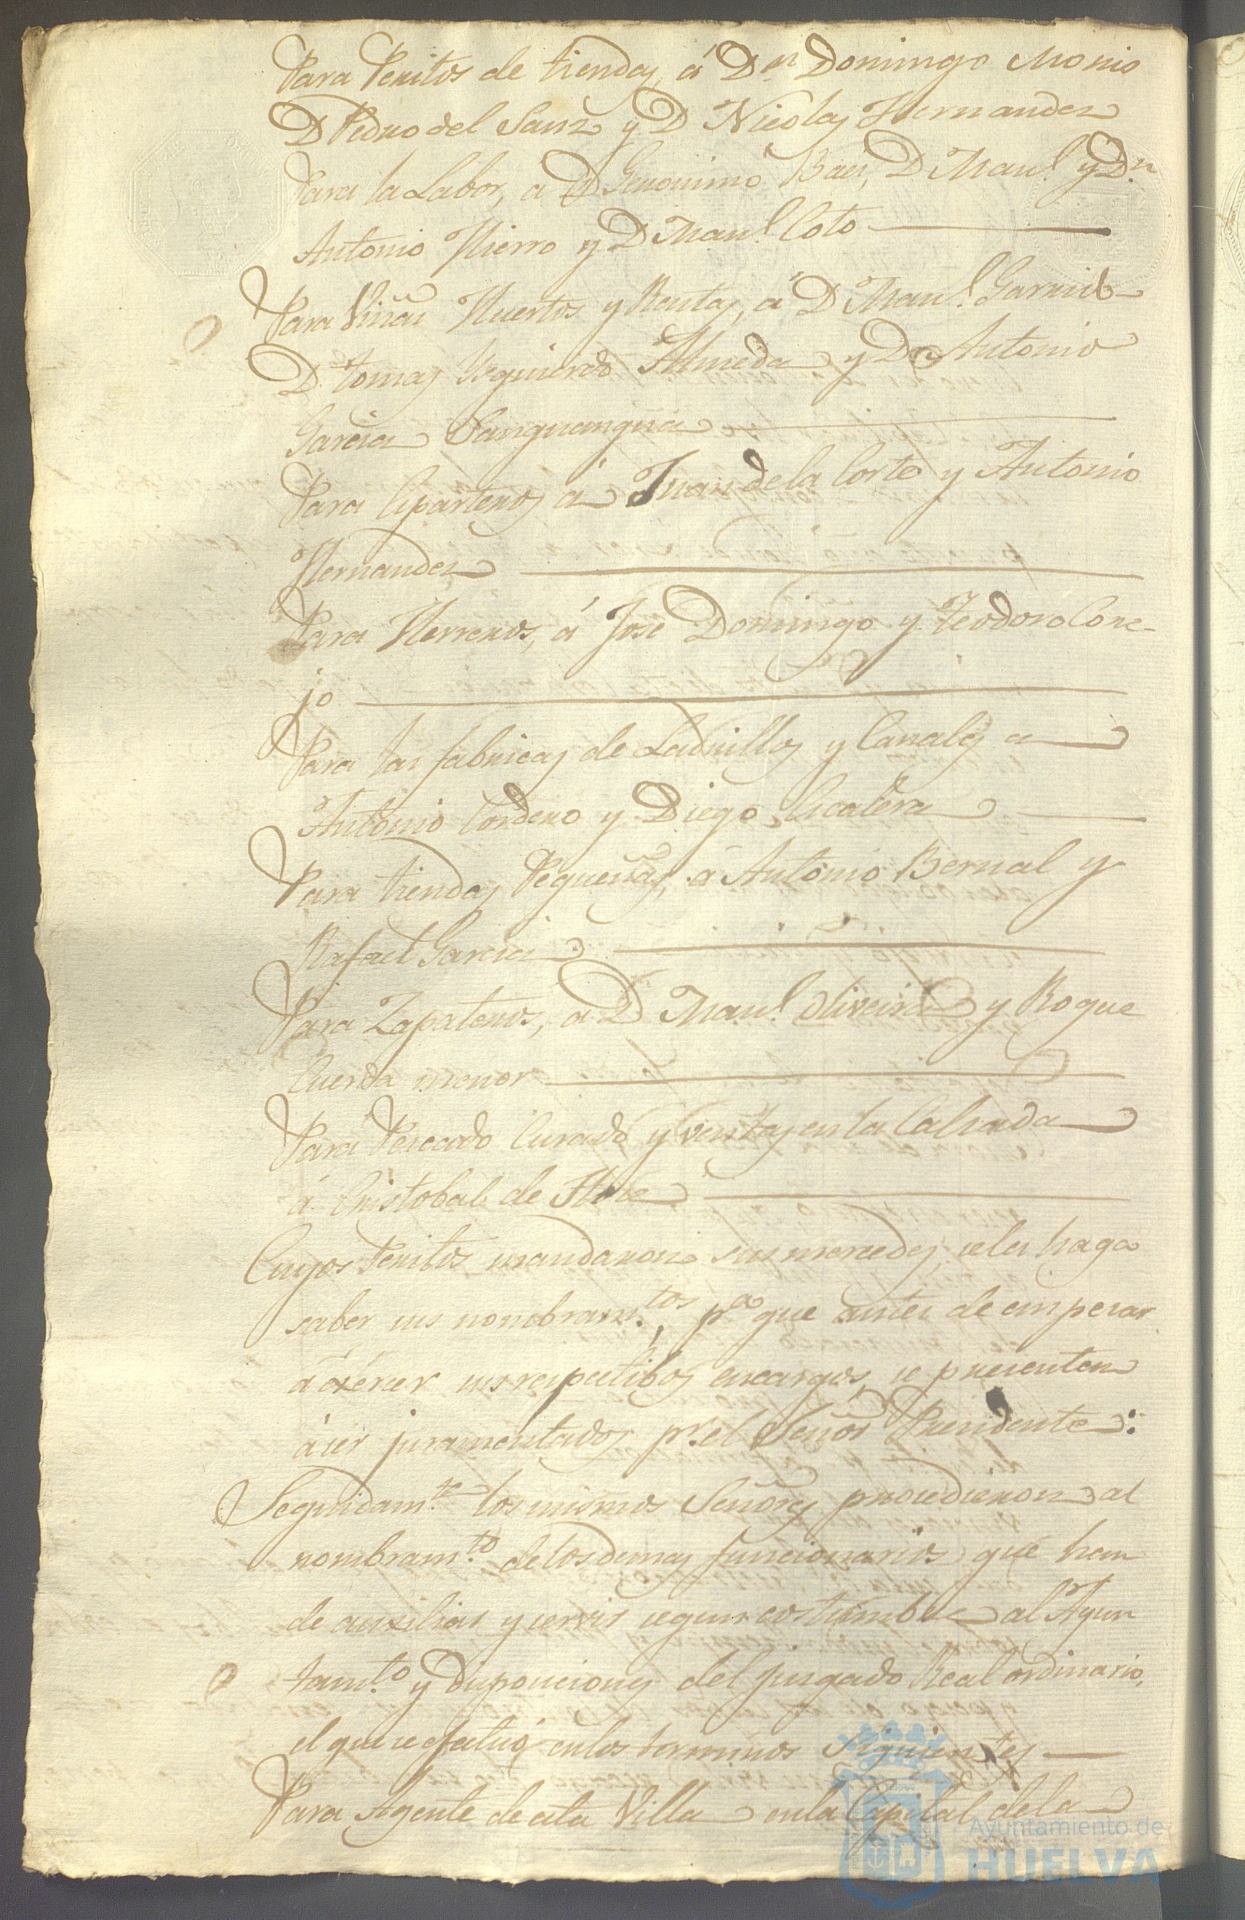 Para Peritos de tiendas, á Dn. Domingo Monis
D Pedro del Sanz y D Nicolas Hernandez
Para la Labor, a D Geronimo Baez, D Man.l y Dn.
Antonio Hierro y D Man.l Coto
Para Viñas Huertos y Rentas, á D Man.l Garrido
D. tomas Yzquierdo Almeda y Dn Antonio
Garcia
Para Capateros á Juan de la Corte y Antonio
Hernandez
Para Herreros, á José Domingo y Teodoro Cone-
jo
Para las fabricas de Ladrillos y Canales a
Antonio Cordero y Diego Escalera
Para tiendas Pequeñas, á Antonio Bernal y
Rafael Garcia
Para Zapateros, a D Man.l Oliveira y Roque
Cuerda menor
Para Pescado Curado y ventas en la Calzada
á Cristobal de Flore
Cuyos Peritos mandaron sus mercedes se les haga
saber sus nombram.tos, pa que antes de empezar
á exercer sus respectibos encargos, se presenten
á ser juramentados pr. el Señor Presidente:
Seguidam.te los mismos Señores procedieron al
nombram.to de los demas funcionarios que han
de auxiliar y servir segun costumbre al Ayun
tam.to y Disposiciones del juzgado Real ordinario,
el que se efectuó en los terminos siguientes
Para Agente de esta Villa en la Capital de la
Ayuntamiento de
HUELVA